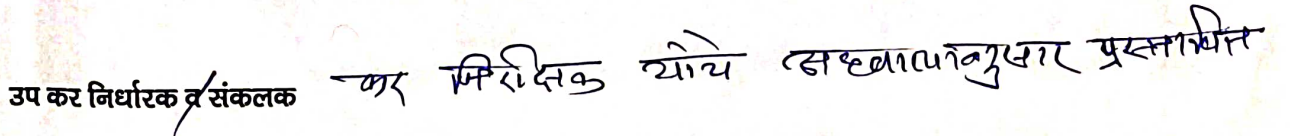 उप कर निर्धारक व संकलक कर निरीक्षक यांचे अहवालानुसार प्रस्तावित